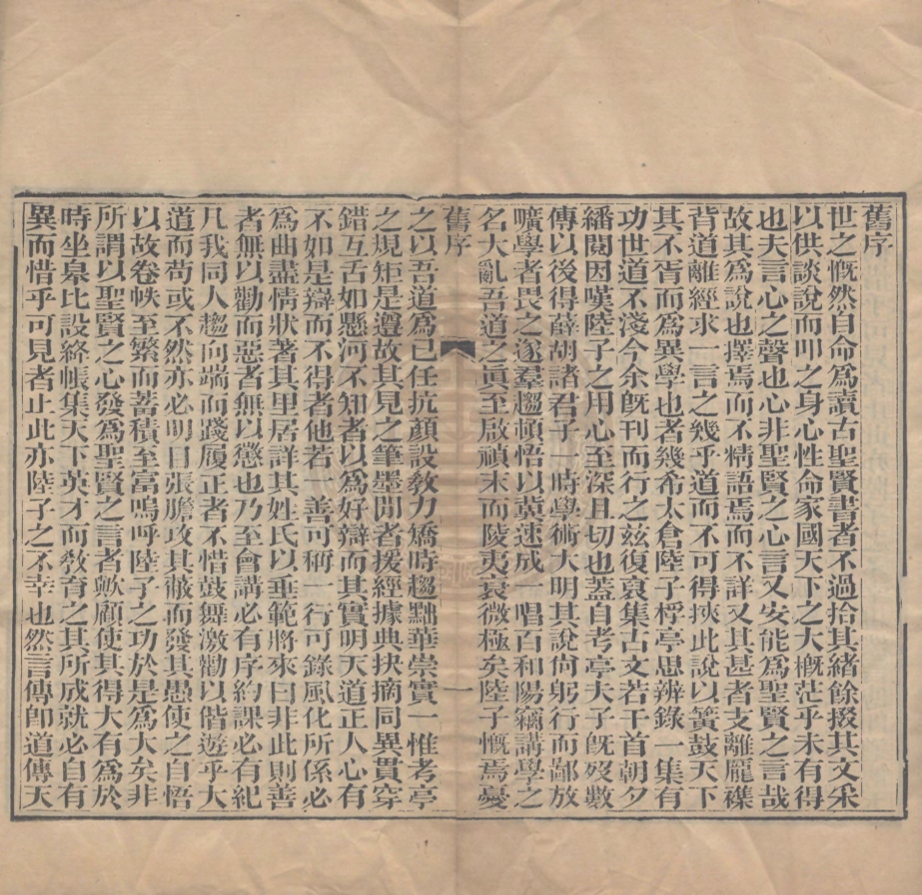 舊序
世之慨然自命爲讀古聖賢書者不過拾其緒餘掇其文采
以供談說而叩之身心性命家國天下之大槪茫乎未有得
也夫言心之聲也心非聖賢之心言又安能爲聖賢之言哉
故其爲說也擇焉而不精語焉而不詳又其甚者支離龎襍
背道離經求一言之幾乎道而不可得挾此說以簧鼓天下
其不胥而爲異學也者幾希太倉陸子桴亭思辨錄一集有
功世道不淺今余旣刊而行之玆復裒集古文若干首朝夕
繙閱因嘆陸子之用心至深且切也蓋自考亭夫子旣歿數
傳以後得薛胡諸君子一時學術大明其說尙躬行而鄙放
曠學者畏之遂羣趨頓悟以冀速成一唱百和陽竊講學之
名大亂吾道之眞至啟禎末而陵夷衰微極矣陸子慨焉憂
舊序
一
之以吾道爲己任抗顏設敎力矯時趨黜華崇實一惟考亭
之規矩是遵故其見之筆墨閒者援經據典抉摘同異貫穿
錯互舌如懸河不知者以爲好辯而其實明天道正人心有
不如是辯而不得者他若一善可稱一行可錄風化所係必
爲曲盡情狀著其里居詳其姓氏以垂範將來曰非此則善
者無以勸而惡者無以懲也乃至會講必有序約課必有紀
凡我同人趨向端而踐履正者不惜鼓舞激勸以偕遊乎大
道而苟或不然亦必明目張膽攻其蔽而發其愚使之自悟
以故卷帙至繁而蓄積至富嗚呼陸子之功於是爲大矣非
所謂以聖賢之心發爲聖賢之言者歟顧使其得大有爲於
時坐臯比設絳帳集天下英才而敎育之其所成就必自有
異而惜乎可見者止此亦陸子之不幸也然言傳卽道傳天